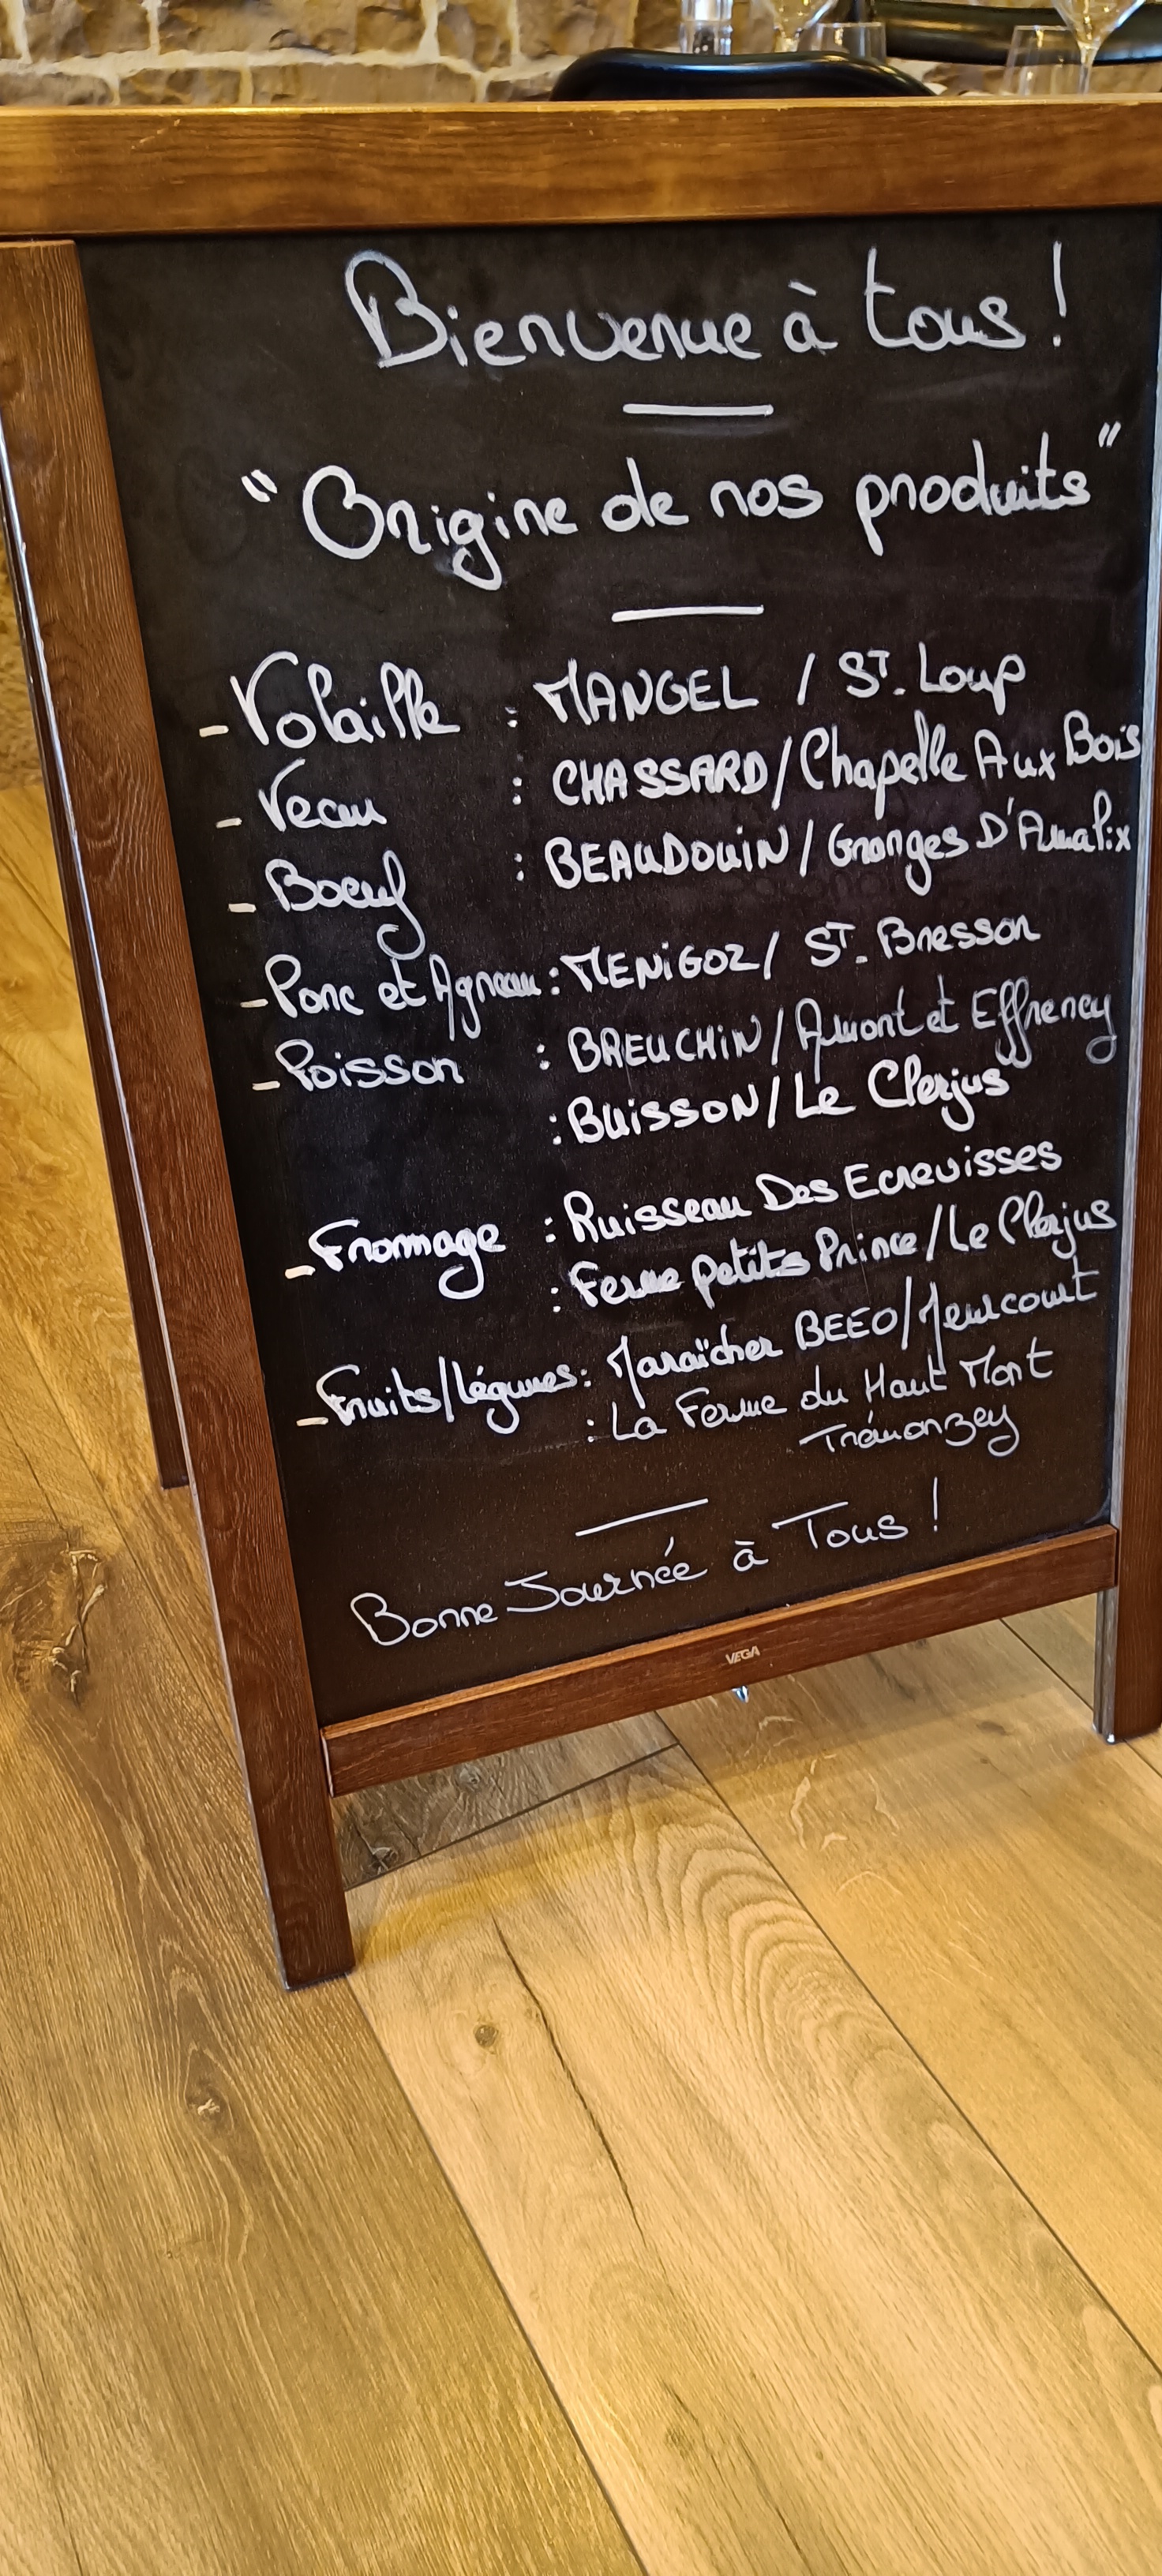 Bienvenue à tous !
"Origine de nos produits"
- Volaille : MANGEL / ST. Loup
- Veau : CHASSARD / Chapelle Aux Bois
- Boeuf : BEAUDOUIN / Granges D'Amalix
- Porc et Agneau : MENIGOZ / ST. Bresson
- Poisson : BREUCHIN / Amont et Effreney
: BUISSON / Le Clerjus
- Fromage : Ruisseau Des Ecrevisses
: Ferme petits Prince / Le Clerjus
- Fruits/légumes : Maraîcher BEEO / Meurcourt
: La Ferme du Haut Mont
Trémonzey
Bonne Journée à Tous !
VEGA